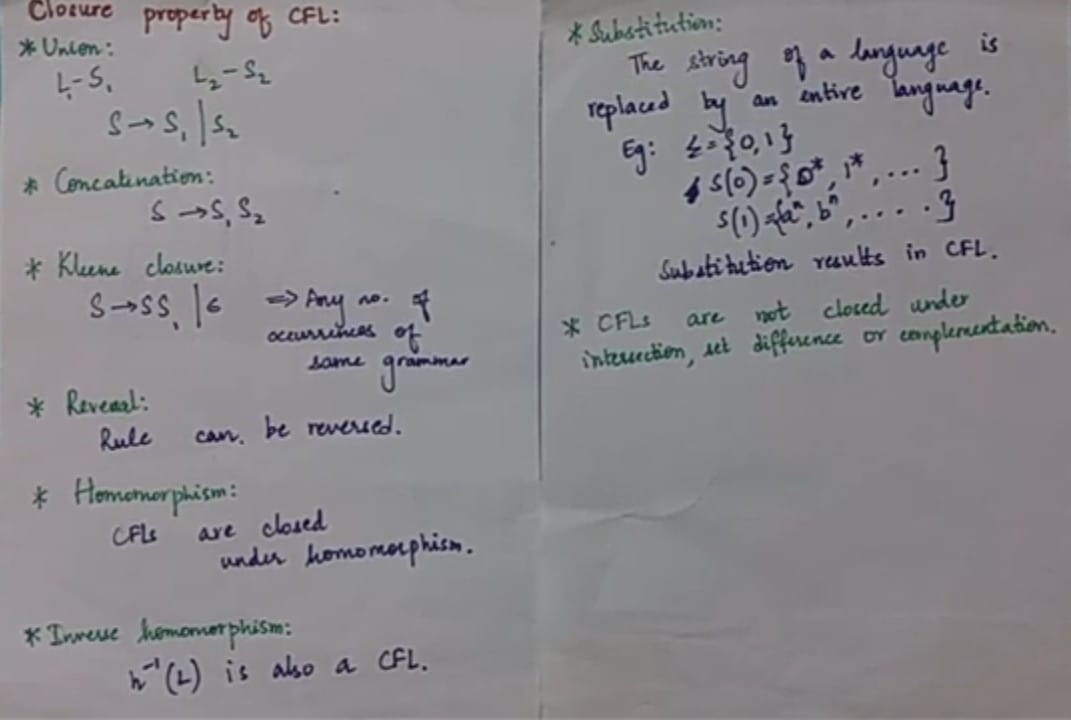 Closure property of CFL:
* Union:
L₁-S₁ L₂-S₂
S → S₁ | S₂
* Concatenation:
S → S₁ S₂
* Kleene closure:
S → SS₁ | ϵ ⇒ Any no. of
occurrences of
same grammar
* Reversal:
Rule can be reversed.
* Homomorphism:
CFLs are closed
under homomorphism.
* Inverse homomorphism:
h⁻¹(L) is also a CFL.
* Substitution:
The string of a language is
replaced by an entire language.
Eg: Σ = {0,1}
S(0) = {0*, 1*, ... }
S(1) = {aⁿ, bⁿ, .... . }
Substitution results in CFL.
* CFLs are not closed under
intersection, set difference or complementation.